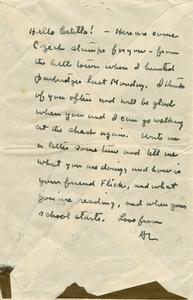 Hello Estella! – Here are some
Czech stamps for you – from
the little town when I hunted
partridges last Monday. I think
of you often and will be glad
when you and I can go walking
at the shack again. Write me
a letter some time and tell me
what you are doing, and how is
your friend Flick, and what
you are reading, and when your
school starts. Love from